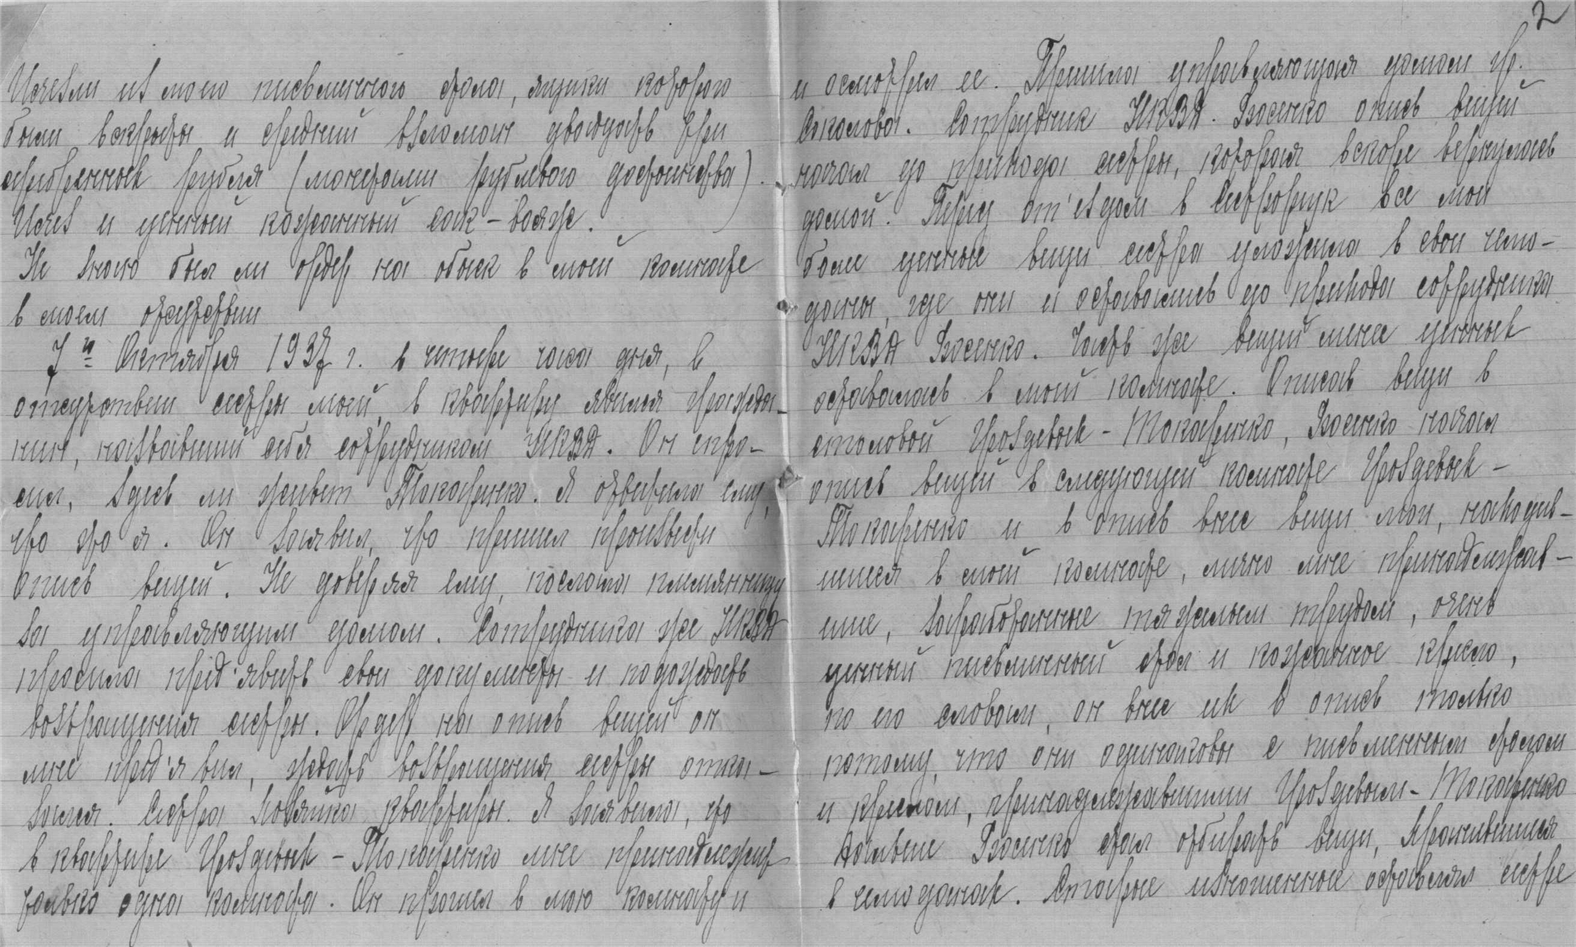 Исчезли из моего письменного стола, ящики которого
были вскрыты и средний взломан двадцать три
серебренных рубля (монетами рублевого достоинства).
Исчез и ценный кожанный сак-вояж.
Не знаю был ли ордер на обыск в моей комнате
в моем отсутствии
7го Октября 1937 г. в четыре часа дня, в
отсутствии сестры моей, в квартиру явился гражда-
нин, назвавший себя сотрудником НКВД. Он спро-
сил, здесь ли живет Токаренко. Я ответила ему,
что это я. Он заявил, что пришел произвести
опись вещей. Не доверяя ему, послала племянницу
за управляющим домом. Сотрудника же НКВД
просила пред'явить свои документы и подождать
возвращения сестры. Ордер на опись вещей он
мне пред'явил, ждать возвращения сестры отка-
зался. Сестра хозяйка квартиры. Я заявила, что
в квартире Гроздевых-Токаренко мне принадлежит
только одна комната. Он прошел в мою комнату и
2
и осмотрел ее. Пришла управляющая домом гр.
Соколова. Сотрудник НКВД опись вещей
начал до прихода сестры, которая вскоре вернулась
домой. Перед от'ездом в все мои
более ценные вещи сестра уложила в свои чемо-
даны, где они и оставались до прихода сотрудника
НКВД. Часть же вещей менее ценных
оставалась в моей комнате. Описав вещи в
столовой Гроздевых-Токаренко, начал
опись вещей в следующей комнате Гроздевых-
Токаренко и в опись внес вещи мои, находив-
шиеся в моей комнате, лично мне принадлежав-
шие, заработанные тяжелым трудом, очень
ценный письменный стол и кожаное кресло,
по его словам, он внес их в опись только
потому, что они одинаковы с письменным столом
и креслом, принадлежавшими Гроздевым-Токаренко
стал отбирать вещи, хранившиеся
в чемоданах. Старые изношенные оставлял сестре